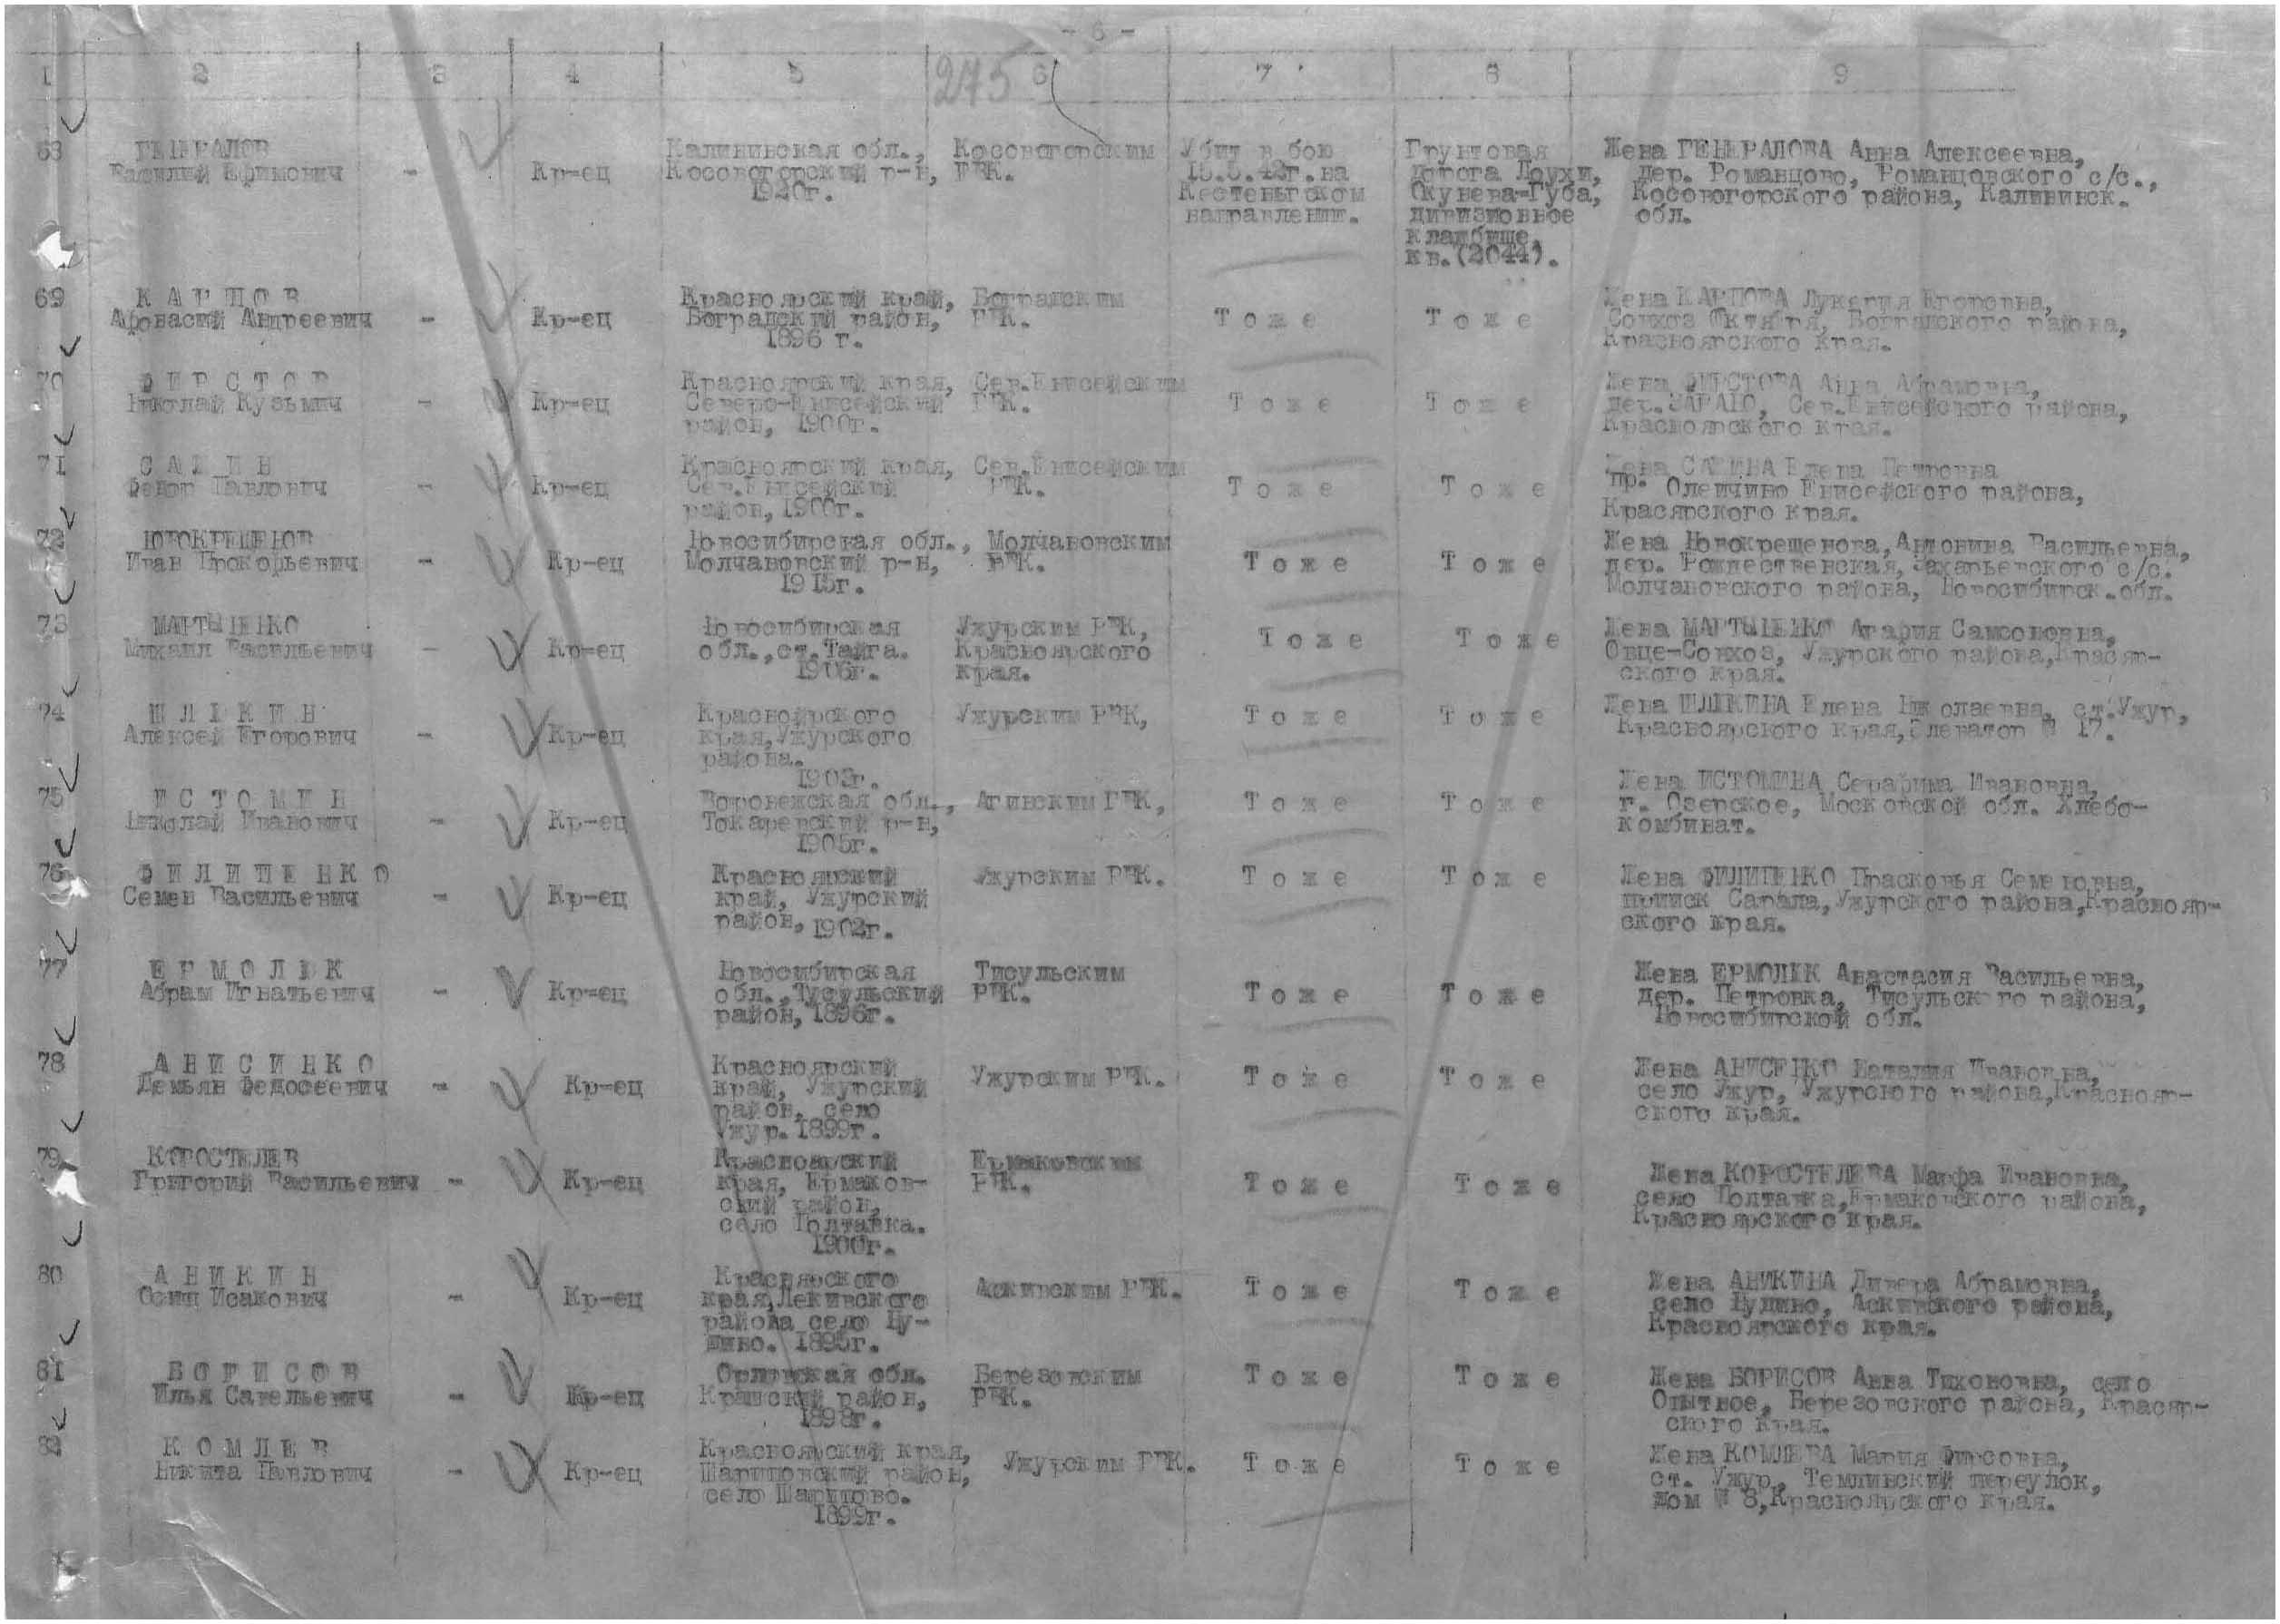 - 6 -
1 2 3 4 5 6 7 8 9
275
68 ГЕНЕРАЛОВ
Василий Ефимович - Кр-ец
Калининская обл.,
Косовогорский р-н,
1920г.
Косовогорским
РВК.
Убит в бою
на
Кестеньгском
направлении.
Грунтовая
дорога Лоухи,
Окунева-Губа,
дивизионное
кладбище,
кв.(2044).
Жена ГЕНЕРАЛОВА Анна Алексеевна,
дер. Романцово, Романцовского с/с.,
Косовогорского района, Калининск.
обл.
69 КАРПОВ
Афонасий Андреевич - Кр-ец
Красноярский край,
Боградский район,
1896 г.
Боградским
РВК.
Тоже
Тоже
Жена КАРПОВА Лукерия Егоровна,
Совхоз Октября, Боградского района,
Красноярского края.
70 ФИРСТОВ
Николай Кузьмич - Кр-ец
Красноярский края,
Северо-Енисейский
район, 1900г.
Сев.Енисейским
РВК.
Тоже
Тоже
Жена ФИРСТОВА Анна Абрамовна,
дер. Сев.Енисейского района,
Красноярского края.
71
Федор Павлович - Кр-ец
Красноярский края,
Сев.Енисейский
район, 1900г.
Сев.Енисейским
РВК.
Тоже
Тоже
Жена Елена Петровна
пр. Олейчино Енисейского района,
Красярского края.
72 НОВОКРЕЩЕНОВ
Иван Прокофьевич - Кр-ец
Новосибирская обл.,
Молчановский р-н,
1915г.
Молчановским
РВК.
Тоже
Тоже
Жена Новокрещенова, Антонина Васильевна,
дер. Рождественская, Захарьевского с/с.
Молчановского района, Новосибирск.обл.
73 МАРТЫНЕНКО
Михаил Васильевич - Кр-ец
Новосибирская
обл.,ст.Тайга.
1906г.
Ужурским РВК,
Красноярского
края.
Тоже
Тоже
Жена МАРТЫНЕНКО Агария Самсоновна,
Овце-Совхоз, Ужурского района,Красяр-
ского края.
74 ШЛЯКИН
Алексей Егорович - Кр-ец
Красноярского
края,Ужурского
района.
1903г.
Ужурским РВК,
Тоже
Тоже
Жена ШЛЯКИНА Елена Николаевна, ст.Ужур,
Красноярского края,Элеватор № 17.
75 ИСТОМИН
Николай Иванович - Кр-ец
Воронежская обл.,
Токаревский р-н,
1905г.
Агинским РВК,
Тоже
Тоже
Жена ИСТОМИНА Серафима Ивановна,
г. Озерское, Московской обл. Хлебо-
комбинат.
76 ФИЛИПЕНКО
Семен Васильевич - Кр-ец
Красноярский
край, Ужурский
район, 1902г.
Ужурским РВК.
Тоже
Тоже
Жена ФИЛИПЕНКО Прасковья Семеновна,
прииск Сарала,Ужурского района,Краснояр-
ского края.
77 ЕРМОЛЮК
Абрам Игнатьевич - Кр-ец
Новосибирская
обл.,Тусульский
район, 1896г.
Тисульским
РВК.
Тоже
Тоже
Жена ЕРМОЛЮК Анастасия Васильевна,
дер. Петровка, Тисульского района,
Новосибирской обл.
78 АНИСИНКО
Демьян Федосеевич - Кр-ец
Красноярский
край, Ужурский
район, село
Ужур. 1899г.
Ужурским РВК.
Тоже
Тоже
Жена АНИСЕНКО Наталия Ивановна,
село Ужур, Ужурского района,Краснояр-
ского края.
79 КОРОСТЕЛЕВ
Григорий Васильевич - Кр-ец
Красноярский
края, Ермаков-
ский район,
село Полтавка.
1900г.
Ермаковским
РВК.
Тоже
Тоже
Жена КОРОСТЕЛЕВА Марфа Ивановна,
село Полтавка,Ермаковского района,
Красноярского края.
80 АНИКИН
Осип Исакович - Кр-ец
Красноярского
края,
района село
1895г.
Аскивским РВК.
Тоже
Тоже
Жена АНИКИНА Абрамовна,
село Аскивского района,
Красноярского края.
81 БОРИСОВ
Илья Савельевич - Кр-ец
Орловская обл.
район,
1898г.
Березовским
РВК.
Тоже
Тоже
Жена БОРИСОВ Анна Тихоновна, село
Опытное, Березовского района, Красяр-
ского края.
82 КОМЛЕВ
Никита Павлович - Кр-ец
Красноярский края,
Шариповский район,
село Шарипово.
1899г.
Ужурским РВК.
Тоже
Тоже
Жена КОМЛЕВА Мария Фирсовна,
ст. Ужур, Темлинский переулок,
дом № 8,Красноярского края.